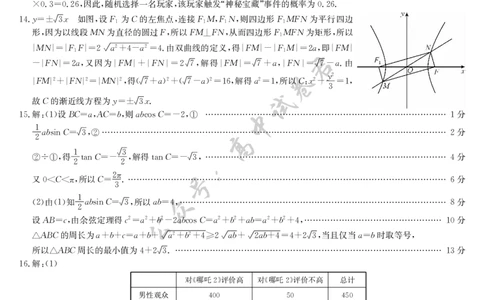 ×0.3=0.26,因此,随机选择一名玩家,该玩家触发“神秘宝藏”事件的概率为 0.26.
14.y=±√3x 如图,设 F₁ 为 C 的左焦点,连接 F₁M,F₁N,则四边形 F₁MFN 为平行四边
形.因为以线段 MN 为直径的圆过 F,所以 FM⊥FN,从而四边形 F₁MFN 为矩形,所以
|MN|=|F₁F|=2√(a²+4-a²)=4,由双曲线的定义,得|FM|-|F₁M|=2a,即|FM|
-|FN|=2a,又因为|FM|+|FN|=2√7,解得|FM|=√7+a,|FN|=√7-a,由
|FM|²+|FN|²=|MN|²,得(√7+a)²+(√7-a)²=16,解得 a²=1,所以C:x²+y²/3=1,
故 C 的渐近线方程为 y=±√3x.
y
N
F₁
O
F
x
M
15.解:(1)设 BC=a,AC=b,则 abcos C=-2,① 1分
1/2 absin C=√3,② 2分
②÷①,得 1/2 tan C=-√3/2,解得 tan C=-√3, 4分
又 0<C<π,所以 C=2π/3. 6分
(2)由(1)知 1/2 absin C=√3,所以 ab=4, 8分
设 AB=c,由余弦定理得 c²=a²+b²-2abcos C=a²+b²+ab=a²+b²+4, 10分
△ABC 的周长为 a+b+c=a+b+√(a²+b²+4)≥2√ab+√(2ab+4)=4+2√3,当且仅当 a=b 时取等号,
所以△ABC 周长的最小值为 4+2√3. 13分
16.解:(1)
对《哪吒2》评价高 对《哪吒2》评价不高 总计
男性观众 400 50 450